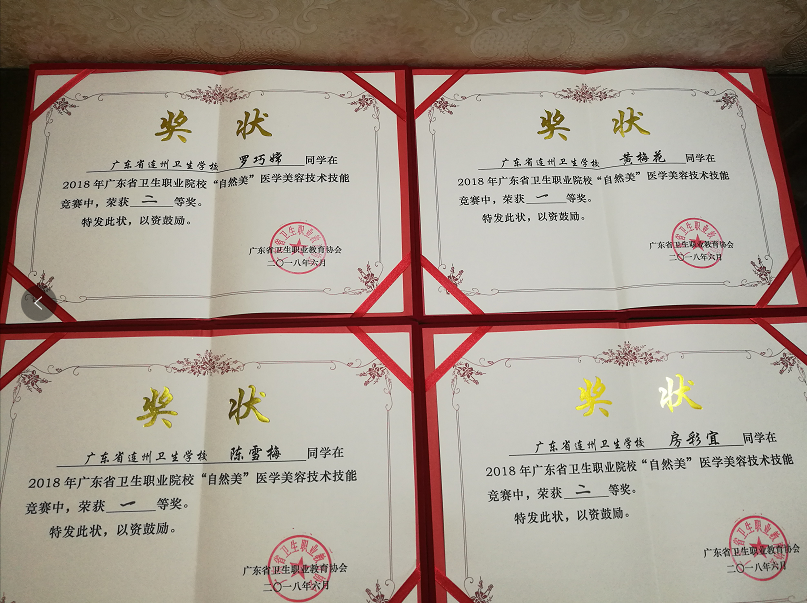 奖状
广东省连州卫生学校 罗巧嫦 同学在
2018年广东省卫生职业院校“自然美”医学美容技术技能
竞赛中，荣获 二 等奖。
特发此状，以资鼓励。
广东省卫生职业教育协会
二〇一八年六月
奖状
广东省连州卫生学校 黄梅花 同学在
2018年广东省卫生职业院校“自然美”医学美容技术技能
竞赛中，荣获 一 等奖。
特发此状，以资鼓励。
广东省卫生职业教育协会
二〇一八年六月
奖状
广东省连州卫生学校 陈雪梅 同学在
2018年广东省卫生职业院校“自然美”医学美容技术技能
竞赛中，荣获 一 等奖。
特发此状，以资鼓励。
广东省卫生职业教育协会
二〇一八年六月
奖状
广东省连州卫生学校 房彩宜 同学在
2018年广东省卫生职业院校“自然美”医学美容技术技能
竞赛中，荣获 二 等奖。
特发此状，以资鼓励。
广东省卫生职业教育协会
二〇一八年六月